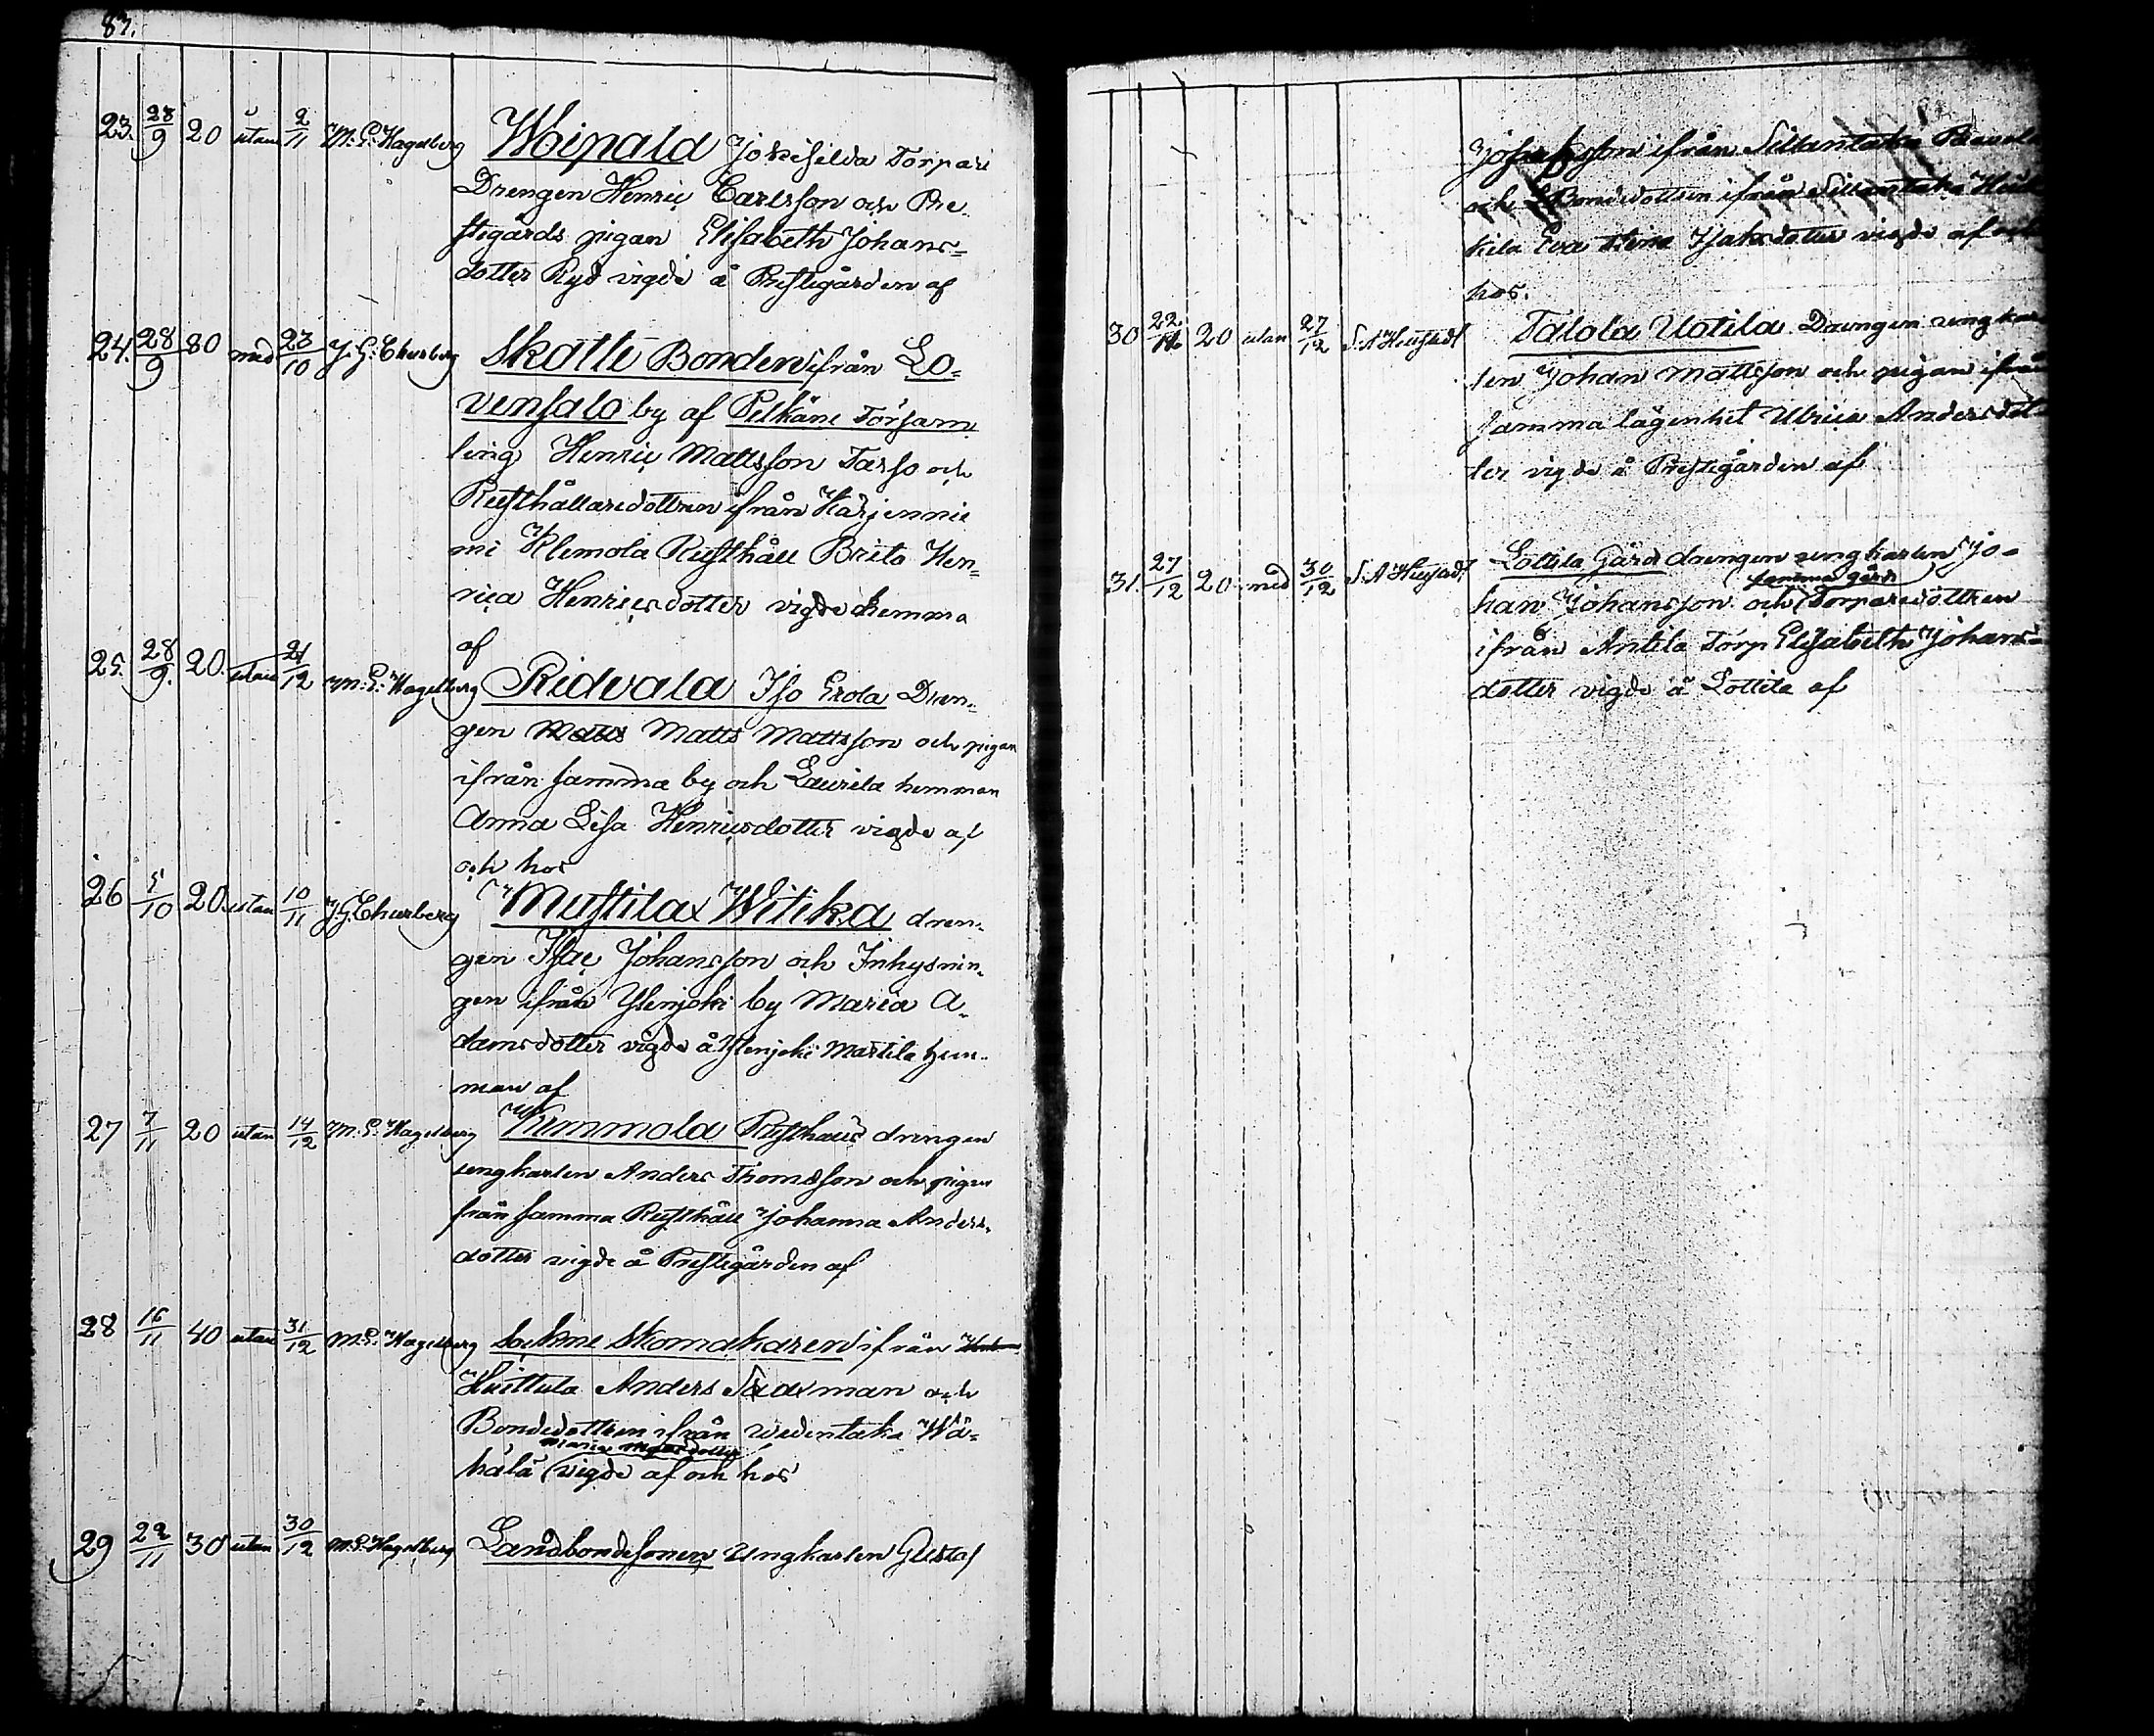 83.
23. 28/9 20 utan 2/11 M: E: Hagelberg Woipala Jokisilda Torpare
Drengen Henric Carlsson och Pre-
stegårds pigan Elisabeth Johans=
dotter Ryd vigde å Prestegården af
24. 28/9 80 med 23/10 J. G: Churberg Skatte Bonden ifrån Lo=
vensalo by af Pelkäne Församl
ling Henric Mattsson Tarso och
Rusthållaredottren ifrån Harjennie
mi Klemola Rusthåll Brita Hen=
rica Henricsdotter vigde hemma
af
25. 28/9. 20. utan 21/12 M: E: Hagelberg Ridvala Iso Erola Dren=
gen Matts Matts Mattsson och pigan
ifrån samma by och Laurila hemman
Anna Lisa Henricsdotter vigde af
och hos
26 5/10 20. utan 10/11 J. G. Churberg Mustila Witika dren-
gen Isac Johansson och Inhysnin-
gen ifrån Ylenjoki by Maria A-
damsdotter vigde å Ylenjoki Martila hem-
man af
27 7/11 20 utan 14/12 M: E: Hagelberg Kemmola Rusthålls drengen
ungkarlen Anders Thomasson och pigan
från samma Rusthåll Johanna Anders-
dotter vigde å Prestegården af
28 16/11 40 utan 31/12 M: E: Hagelberg Sockne Skomakaren ifrån
Huittula Anders Saxman och
Bondedottren ifrån Wedentaka Wä=
hälä vigde af och hos
29 22/11 30 utan 30/12 M: E: Hagelberg Landbondesonen Ungkarlen Gustaf
Josephsson ifrån Sillantaka
och Bondedottren ifrån Sillantaka Heik
kila Eva Stina Isaksdotter vigde af och
hos.
30 22/11 20 utan 27/12 Talola Uotila Drengen ungkar
len Johan Mattsson och pigan ifrån
samma lägenhet Ulrica Andersdot
ter vigde å Prestegården af
31. 27/12 20 med 30/12 Lottila Gård drengen ungkarlen Jo-
samma gård
han Johansson och Torparedottren
ifrån Antila Torp Elisabeth Johans=
dotter vigde å Lottila af